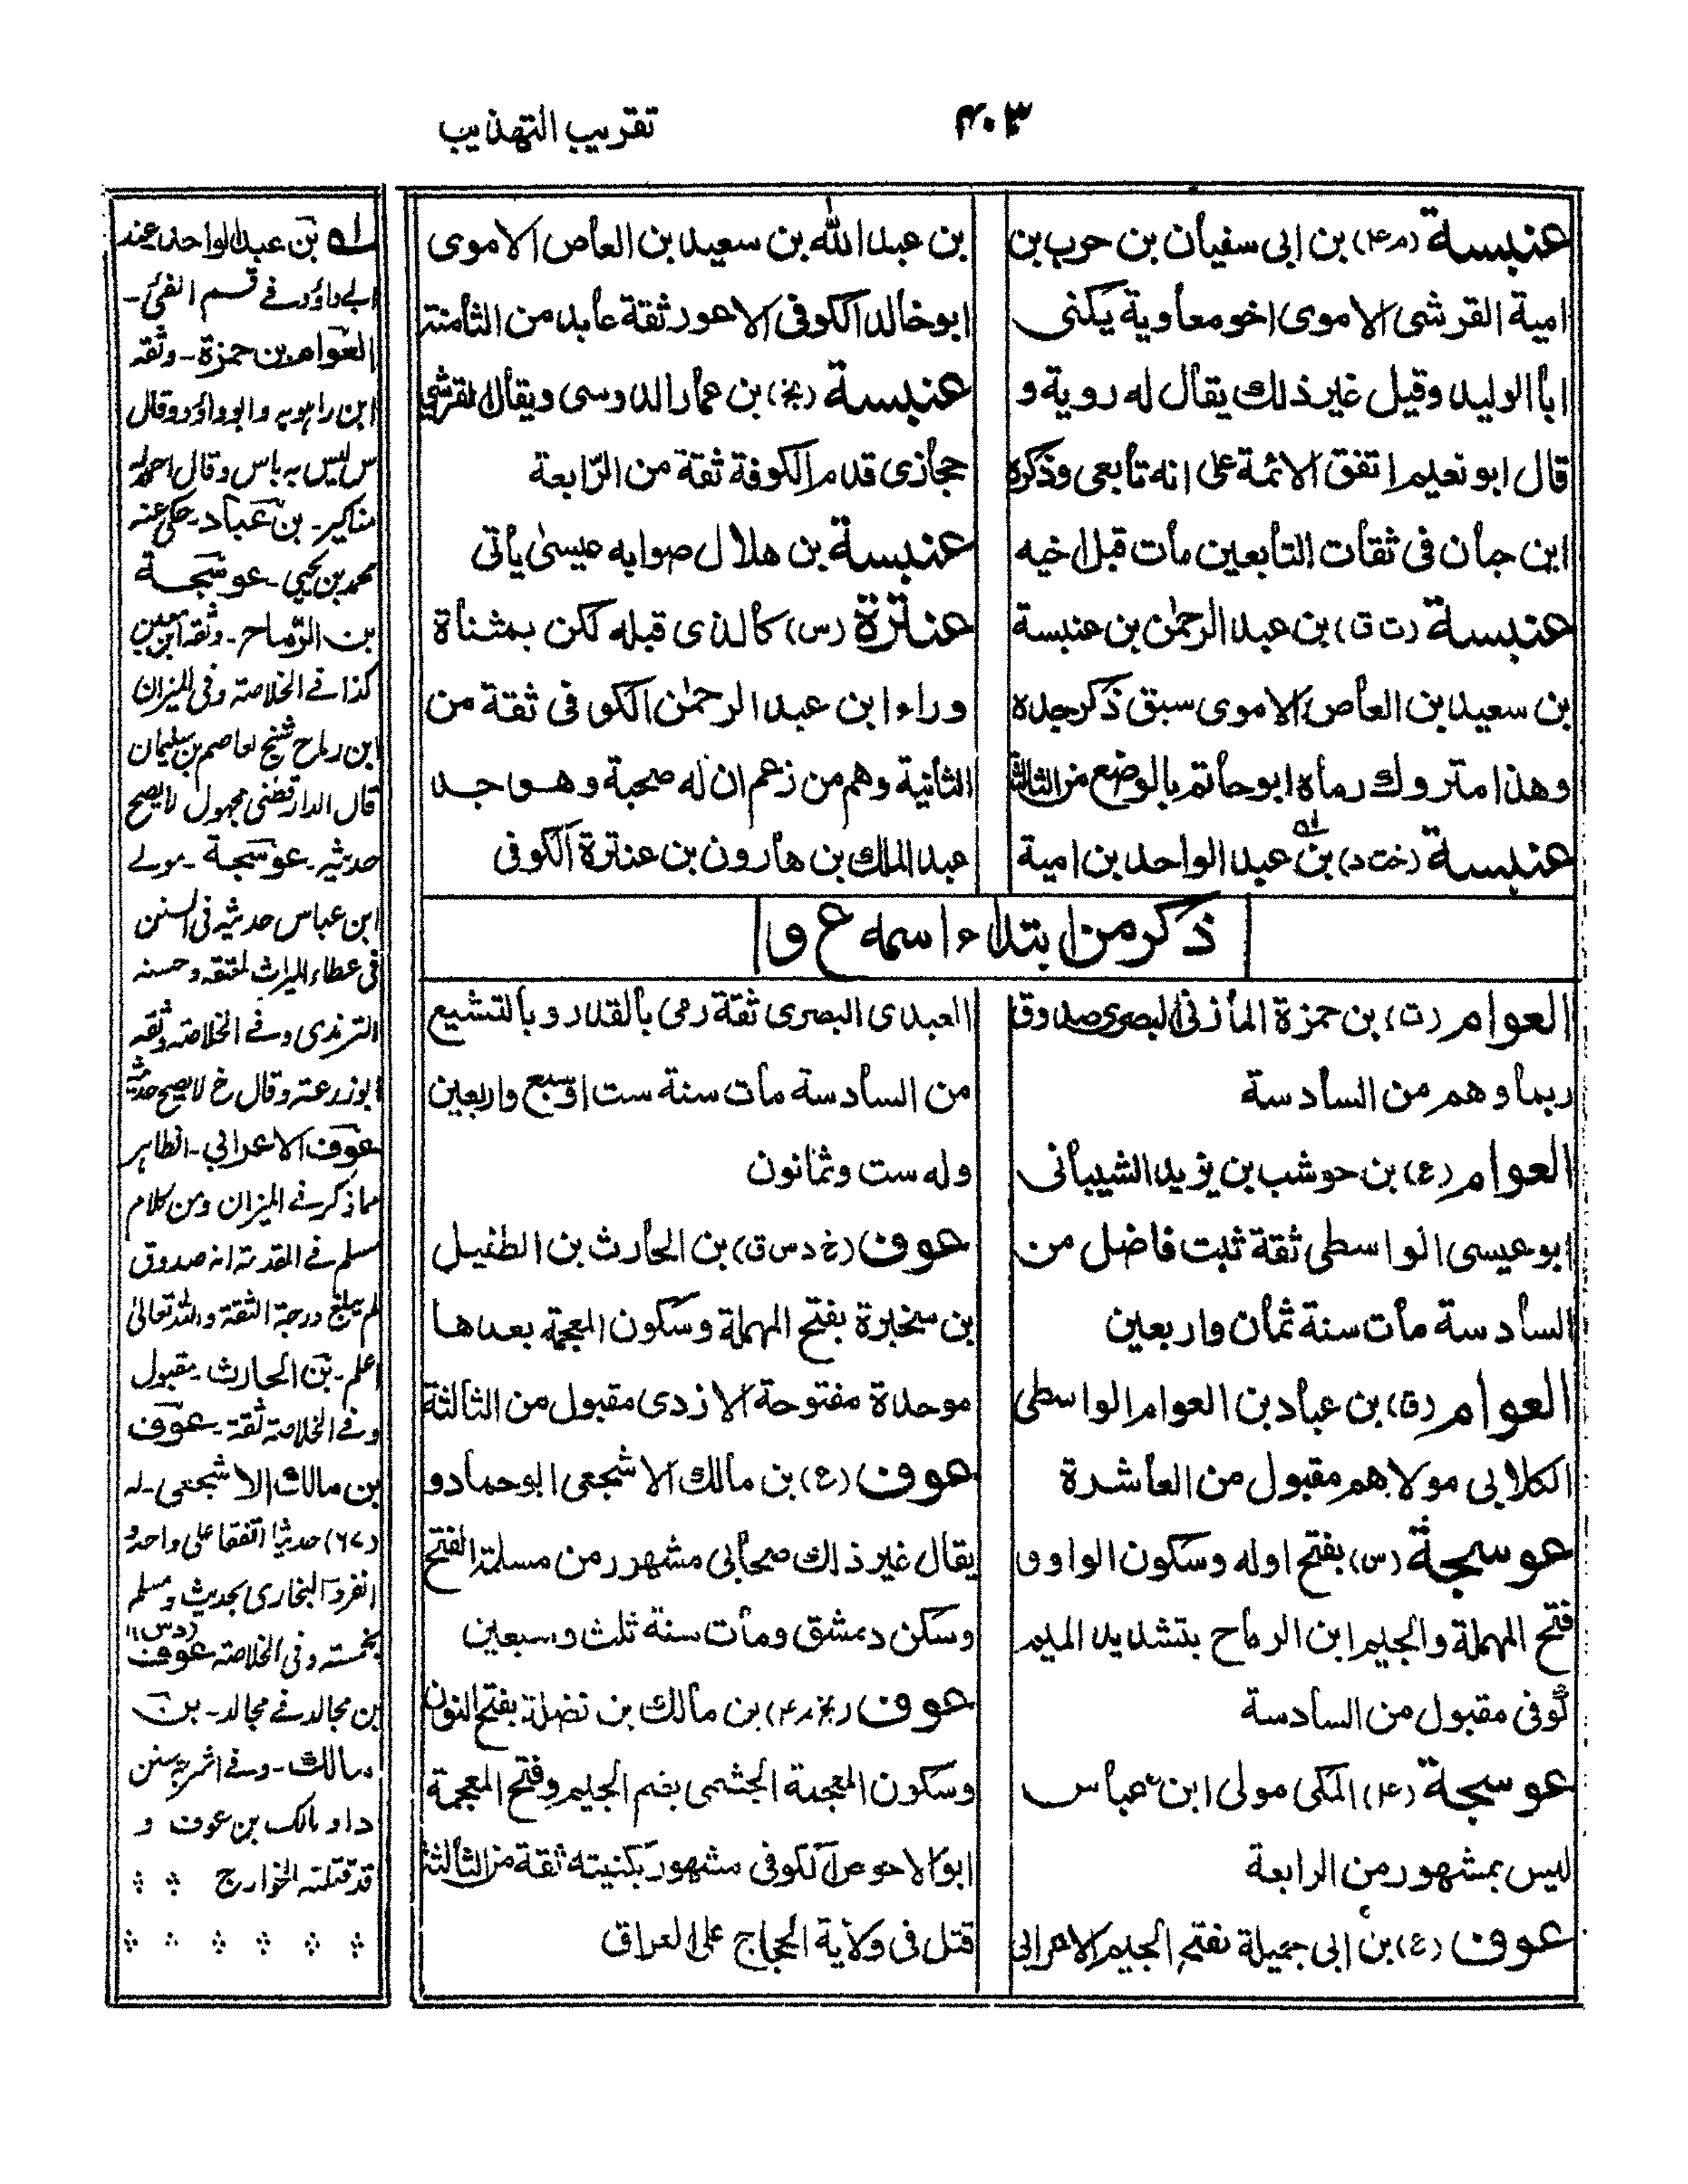 تقريب التهذيب
٤٠٣
عنبسة (م ٤) بن ابى سفيان بن حرب بن
امية القرشى الاموى اخو معاوية يكنى
ابا الوليد وقيل غير ذلك يقال له روية و
قال ابو نعيم اتفق الائمة على انه تابعى وذكره
ابن حبان فى ثقات التابعين مات قبل اخيه
عنبسة (ت ق) بن عبد الرحمٰن بن عنبسة
بن سعيد بن العاص الاموى سبق ذكر جده
وهذا متروك رماه ابو حاتم بالوضع من الثالثة
عنبسة (خت د) بن عبد الواحد بن امية
بن عبد الله بن سعيد بن العاص الاموى
ابو خالد الكوفى الاعور ثقة عابد من الثامنة
عنبسة (بخ) بن عمار الدوسى ويقال القرشى
حجازى قدم الكوفة ثقة من الرّابعة
عنبسة بن هلال صوابه عيسىٰ يأتى
عنترة (س) كالذى قبله لكن بمثناة
وراء ابن عبد الرحمٰن الكوفى ثقة من
الثانية وهم من زعم ان له صحبة وهو جد
عبد الملك بن هارون بن عنترة الكوفى
ذكر من ابتداء اسمه ع و
العوام (ت) بن حمزة المازنى البصرى صدوق
ربما وهم من السادسة
العوام (ع) بن حوشب بن يزيد الشيبانى
ابو عيسى الواسطى ثقة ثبت فاضل من
السادسة مات سنة ثمان واربعين
العوام (ق) بن عباد بن العوام الواسطى
الكلابى مولاهم مقبول من العاشرة
عوسجة (س) بفتح اوله وسكون الواو و
فتح المهملة والجيم ابن الرماح بتشديد الميم
كوفى مقبول من السادسة
عوسجة (٤) المكى مولى ابن عباس
ليس بمشهور من الرابعة
عوف (ع) بن ابى جميلة بفتح الجيم الاعرابى
العبدى البصرى ثقة رمى بالقدر وبالتشيع
من السادسة مات سنة ست او سبع واربعين
وله ست وثمانون
عوف (خ د س ق) بن الحارث بن الطفيل
بن سخبرة بفتح المهملة وسكون المعجمة بعدها
موحدة مفتوحة الازدى مقبول من الثالثة
عوف (ع) بن مالك الاشجعى ابو حماد و
يقال غير ذلك صحابى مشهور من مسلمة الفتح
وسكن دمشق ومات سنة ثلث وسبعين
عوف (بخ م ٤) بن مالك بن نضلة بفتح النون
وسكون المعجمة الجشمى بضم الجيم وفتح المعجمة
ابو الاحوص الكوفى مشهور بكنيته ثقة من الثالثة
قتل فى ولاية الحجاج على العراق
له بن عبد الواحد عند
ابي داؤد في قسم الفئ-
العوام بن حمزة - وثقه
ابن راهويه وابو داؤد وقال
س ليس به باس وقال احمد له
مناكير- بن عباد- حكى عنه
محمد بن يحيى - عوسجة
بن الرّماح - وثقه ابن معين
كذا في الخلاصة وفى الميزان
ابن رماح شيخ لعاصم بن سليمان
قال الدارقطنى مجهول لا يصح
حديثه - عوسجة - مولے
ابن عباس حديثه فى السنن
فى عطاء الميراث لمعتقه وحسنه
الترمذى وفے الخلاصة وثقه
ابو زرعة وقال خ لا يصح حديثه
عوف الاعرابي - الظاهر
مما ذكر فے الميزان ومن كلام
مسلم فے المقدمة انه صدوق
لم يبلغ درجة الثقة والله تعالىٰ
اعلم - بن الحارث - مقبول
وفے الخلاصة ثقة - عوف
بن مالك الاشجعى - له
(٦٧) حديثا اتفقا على واحد و
انفرد البخارى بحديث ومسلم
بخمسة وفى الخلاصة عوف (د س)
بن مجالد فے مجالد - بن
مالك - وفے اشربة سنن
داو مالك بن عوف و
قد قتلته الخوارج